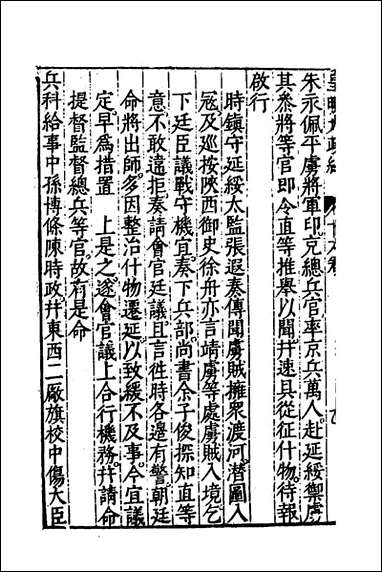 朱永佩平虜將軍印充總兵官率京兵萬人赴延綏禦虜
其叅將等官即令直等推舉以聞幷速具從征什物待報
啟行
時鎮守延綏太監張遐奏傳聞虜賊擁衆渡河潛圖入
冦及巡按陜西御史徐舟亦言靖虜等處虜賊入境乞
下廷臣議戰守機宜奏下兵部尚書余子俊探知直等
意不敢違拒奏請會官廷議且言徃時各邊有警朝廷
命將出師多因整治什物遷延以致緩不及事今宜議
定早爲措置 上是之遂會官議上合行機務幷請命
提督監督總兵等官故有是命
兵科給事中孫博條陳時政幷東西二厰旗校中傷大臣